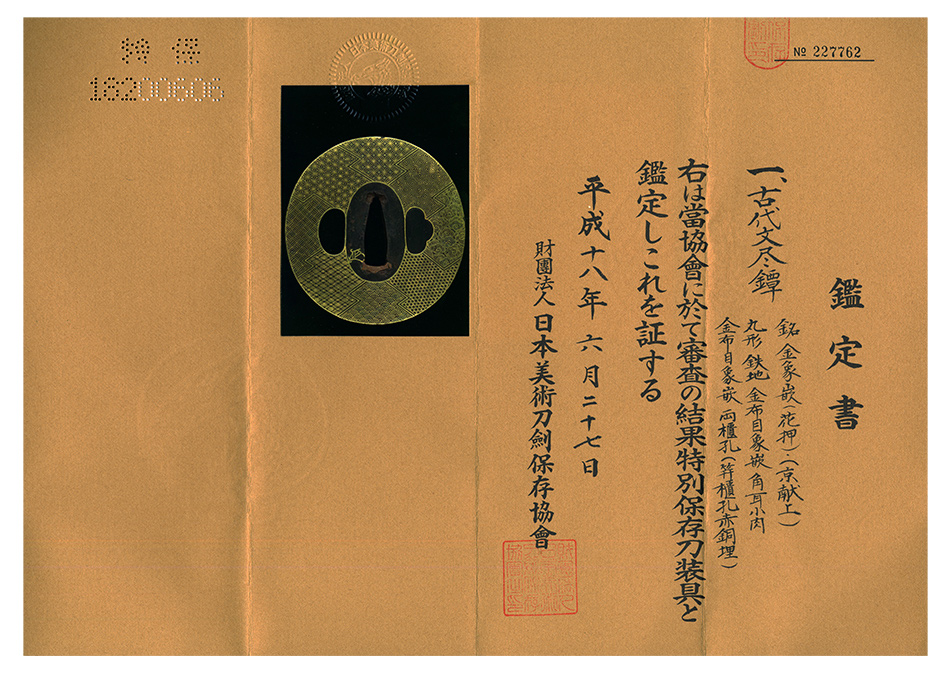 № 227762
鑑定書
一、古代文尽鐔
銘 金象嵌(花押)・(京献上)
丸形 鉄地 金布目象嵌 角耳小肉
金布目象嵌 両櫃孔(笄櫃孔赤銅埋)
右は當協會に於て審査の結果特別保存刀装具と
鑑定しこれを証する
平成十八年 六月二十七日
財團法人 日本美術刀劍保存協會
特保
18200606